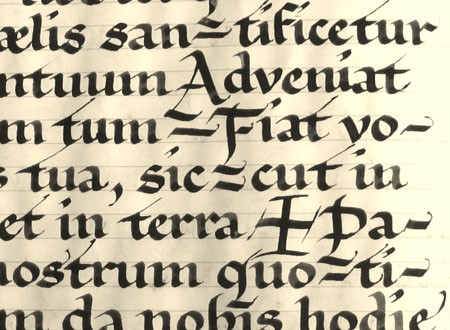 ælis san=tificetur
ntuum Adveniat
m tum = Fiat vo-
s tua, sic=cut in
et in terra + Pa-
nostrum quo=ti-
m da nobis hodie